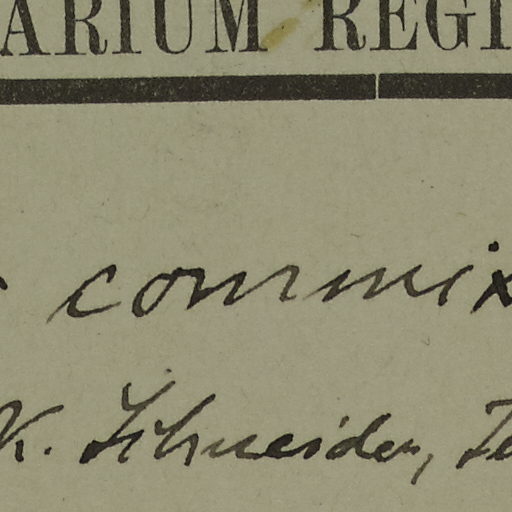 ARIUM REGI
commix
K. Schneider, Te